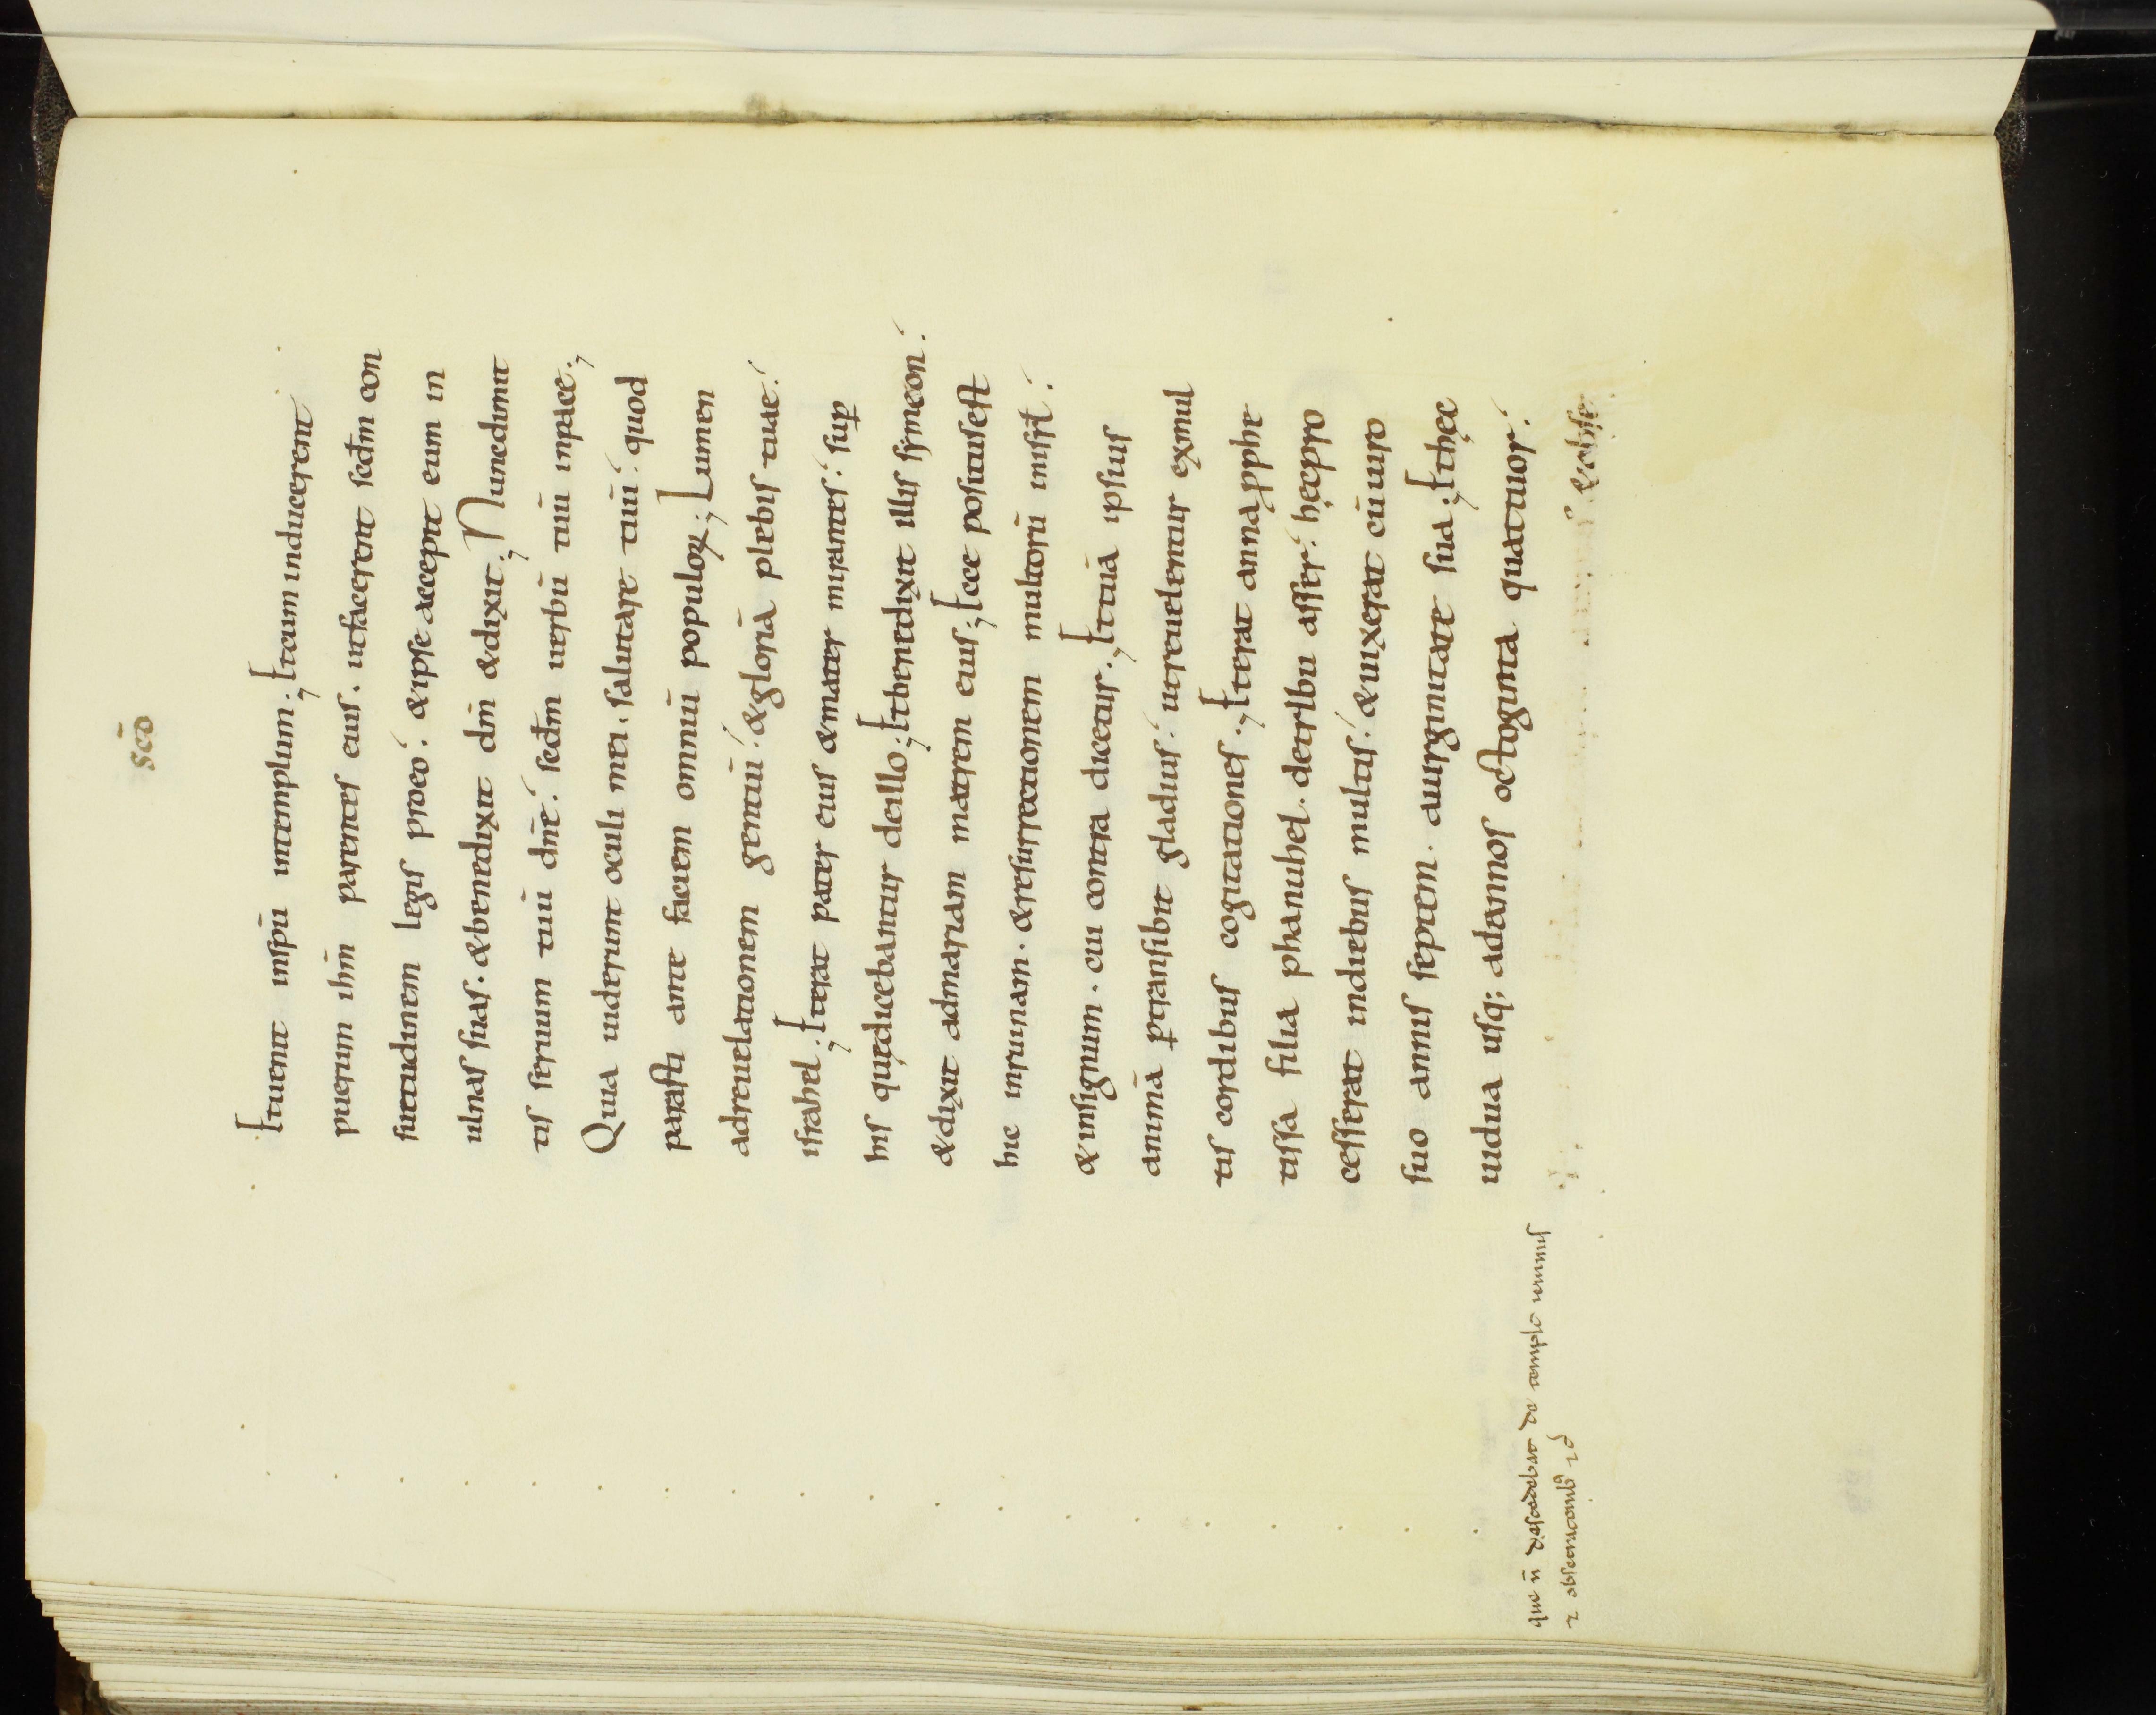 sco̅
Et uenit in sp̅u̅ in templum; Et cum inducerent
puerum ih̅m parentes eius. ut facerent scd̅m con
suetudinem legis pro eo. & ipse accepit eum in
ulnas suas. & benedixit dm̅ & dixit; Nunc dimit
tis seruum tuu̅ dn̅e. scd̅m uerbu̅ tuu̅ in pace;
Quia uiderunt oculi mei. salutare tuu̅. quod
parasti ante faciem omniu̅ populoꝝ; Lumen
ad reuelationem gentiu̅. & gloria̅ plebis tuae.
israhel; Et erat pater eius & mater mirantes. sup̲
his quę dicebantur de illo; Et benedixit illis symeon.
& dixit ad mariam matrem eius; Ecce positus est
hic in ruinam. & resurrectionem multoru̅ in isrl̅.
& in signum. cui contra dicetur; Et tua̅ ipsius
anima̅ ꝑtransibit gladius. ut reuelentur ex mul
tis cordibus cogitationes; Et erat anna ꝓphe
tissa filia phanuhel. de tribu asser. hęc pro
cesserat in diebus multis. & uixerat cu̅ uiro
suo annis septem. a uirginitate sua; Et hęc
uidua usq; ad annos octoginta quatuor.
que n̅ discedebat de templo ieiuniis
⁊ obsecrationibꝰ